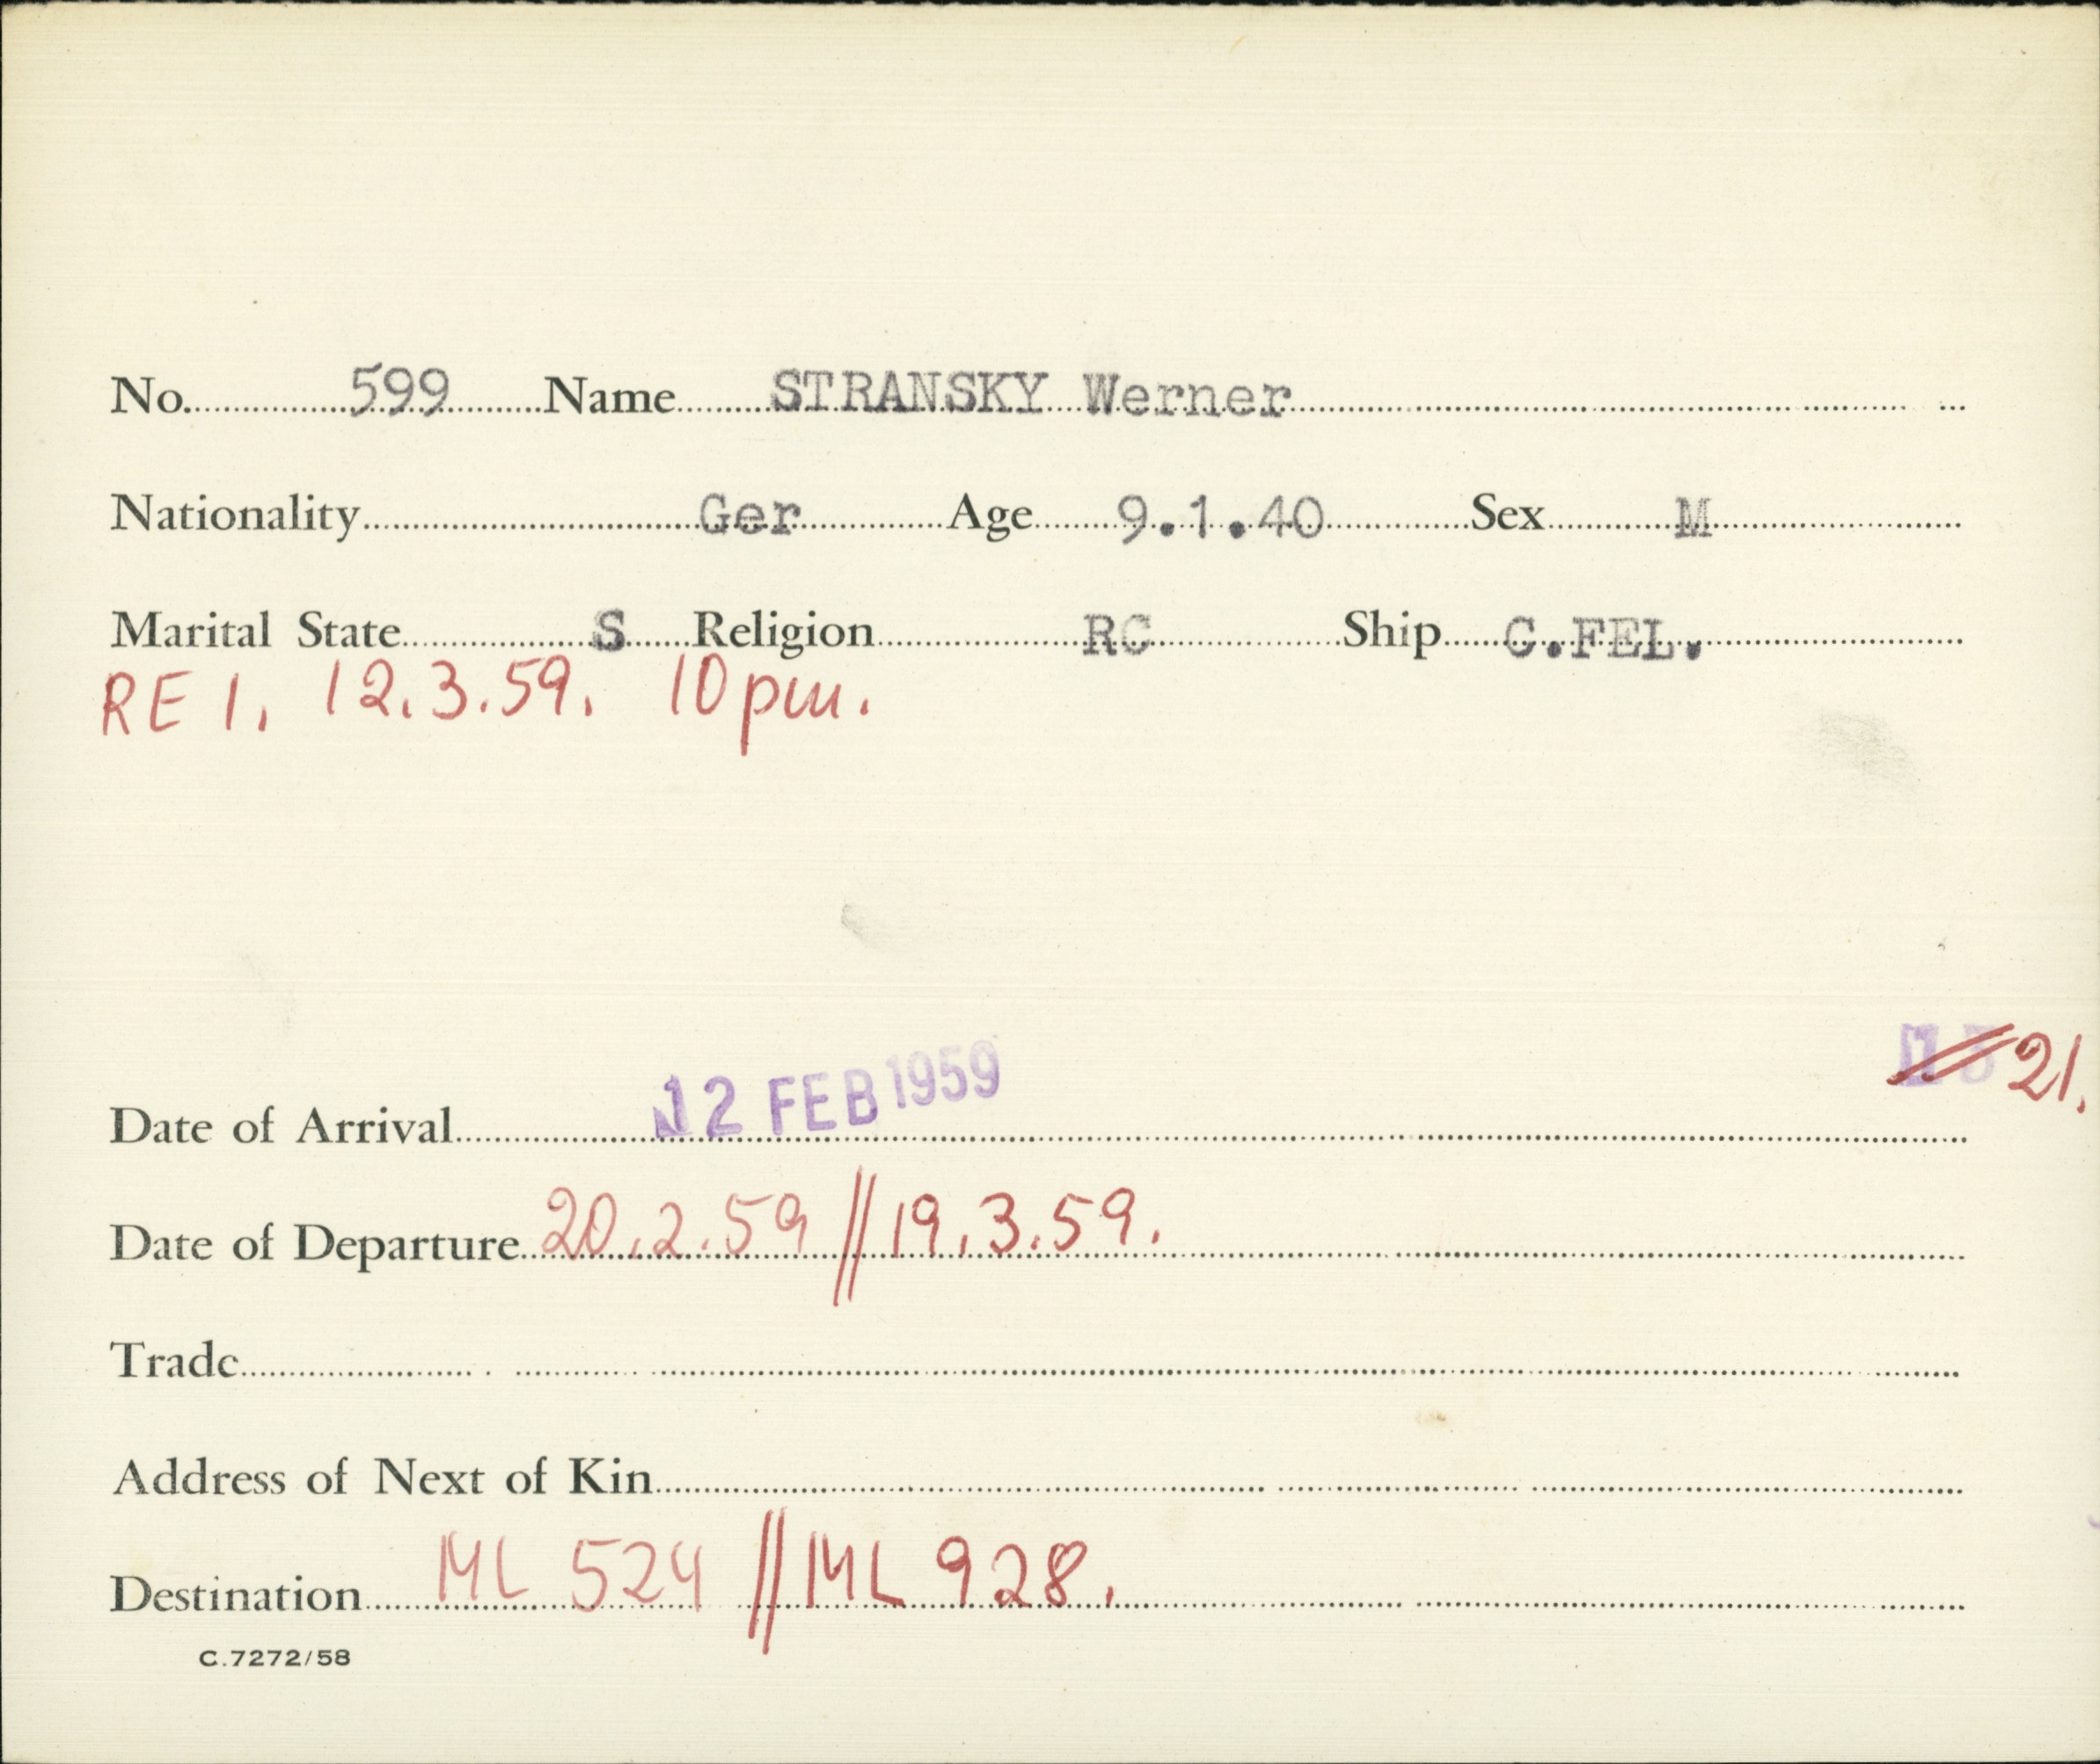 No. 599 Name STRANSKY Werner
Nationality Ger Age 9.1.40 Sex M
Marital State S Religion RC Ship G.FEL.
RE 1. 12.3.59. 10pm.
21.
Date of Arrival 12 FEB 1959
Date of Departure 20.2.59 // 19.3.59.
Trade
Address of Next of Kin
Destination ML 524 // ML 928.
C.7272/58